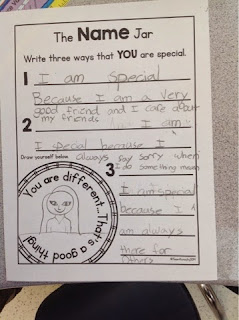 The Name Jar
Write three ways that YOU are special.
1 I am special
Because I am a very
good friend and I care about
my friends
2 I am
I special because I
Draw yourself below. always say sorry when
I do something mean
3 I am special
Because I
am always
there for
others
You are different...That's a good thing!